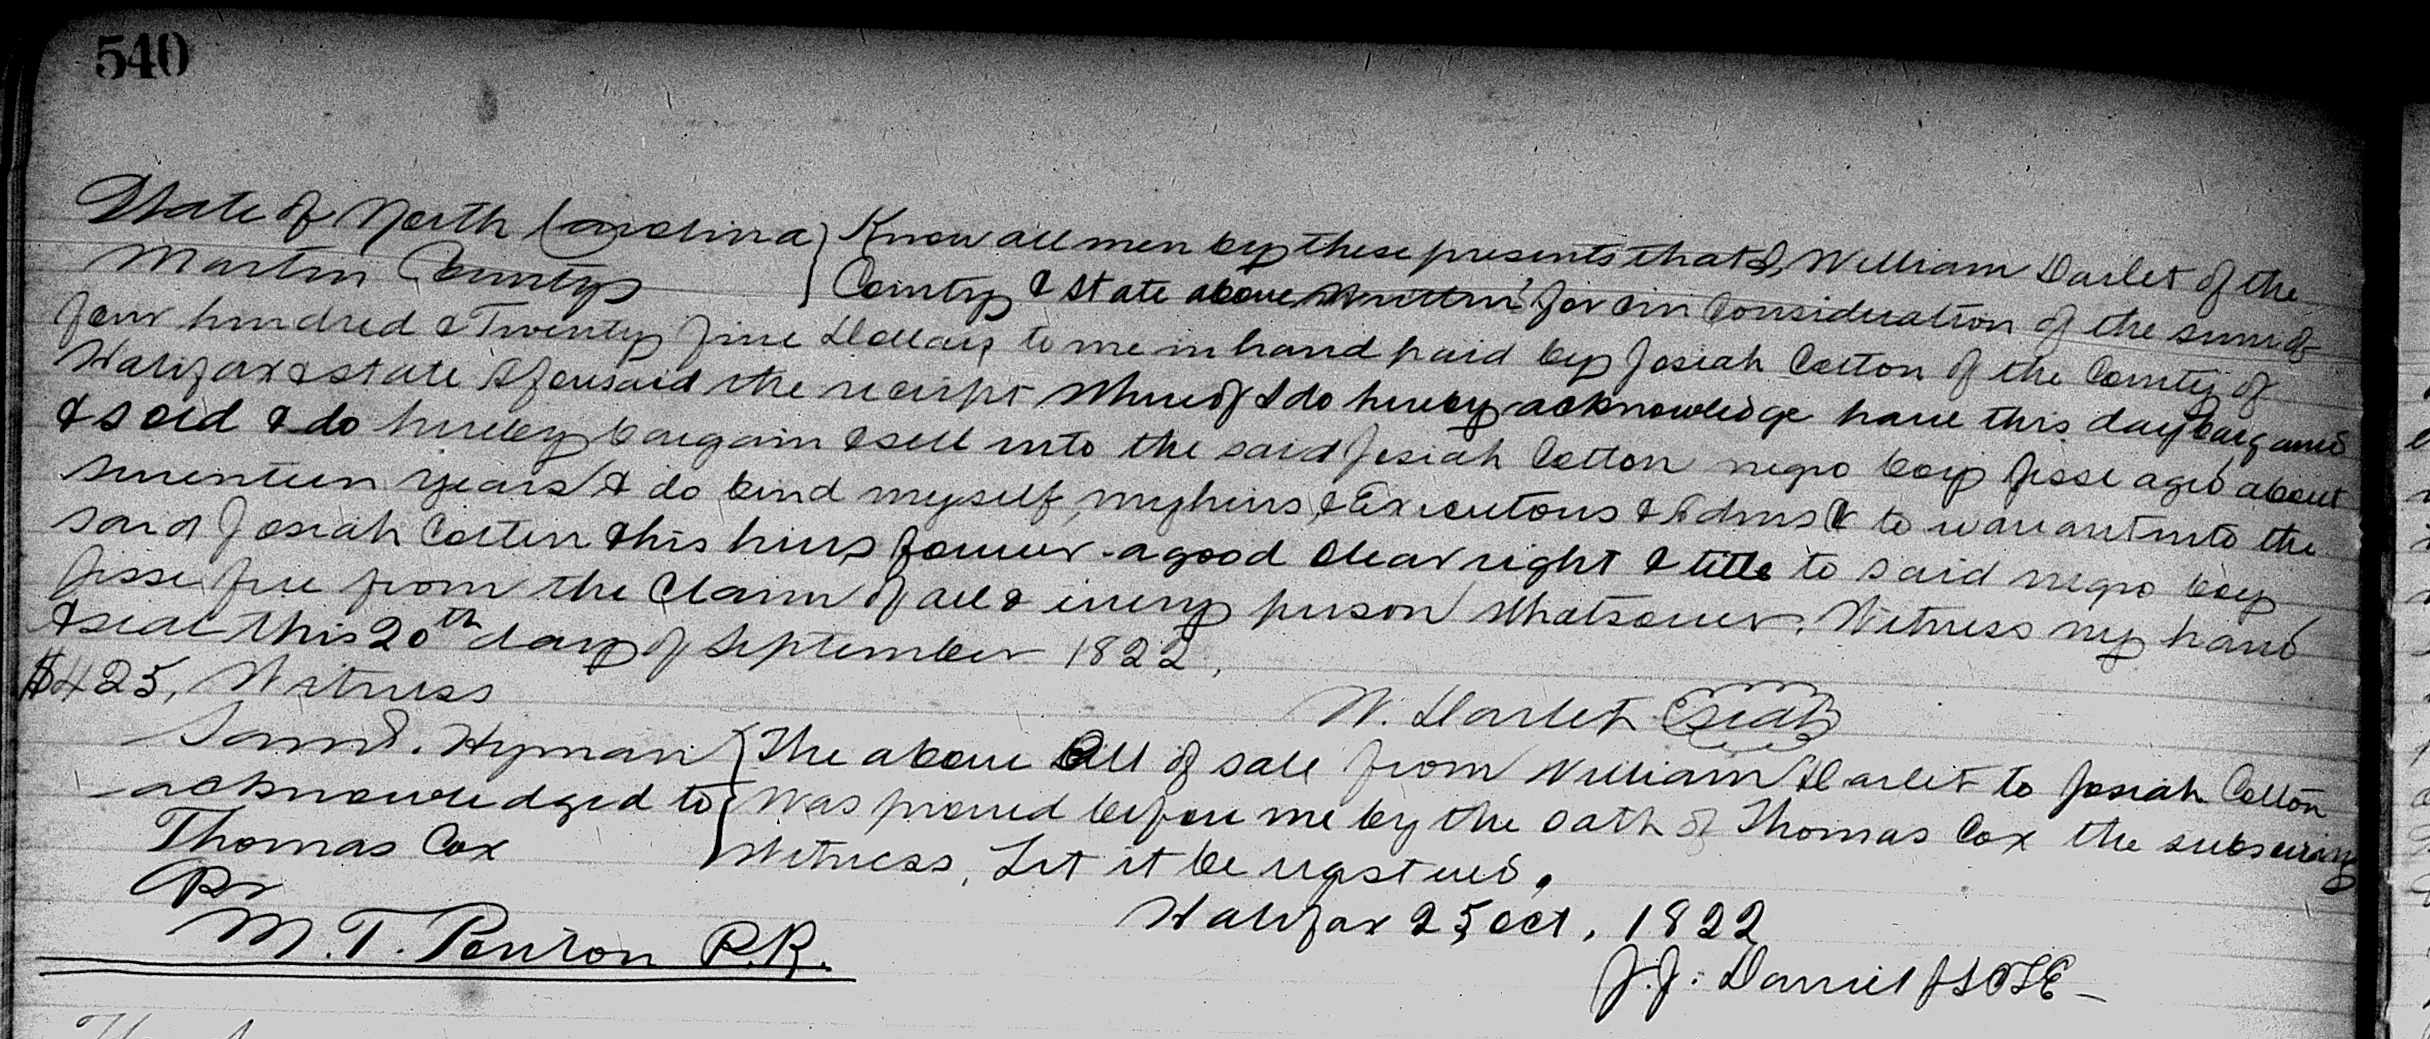 540
State of North Carolina } Know all men by these presents that I, William Darlet of the
Martin County } County & state above written for & in Consideration of the sum of
four hundred & Twenty five Dollars to me in hand paid by Josiah Cotton of the County of
Halifax & state aforesaid the receipt whereof I do hereby acknowledge have this day bargained
& sold & do hereby bargain & sell unto the said Josiah Cotton negro boy Jesse aged about
seventeen years & do bind myself, my heirs, & Executors & Adms & to warrant unto the
said Josiah Cotten & his heirs forever a good clear right & title to said negro boy
Jesse free from the Claim of all & every person whatsoever. Witness my hand
& seal this 20th day of September 1822.
$425, Witness
W. Darlet Seal
Saml. Hyman } The above Bill of sale from William Darlet to Josiah Cotton
acknowledged to } was proved before me by the oath of Thomas Cox the subscribing
Thomas Cox } Witness, Let it be registered.
Pr
Halifax 25 Oct, 1822
M. T. Ponton P.R.
J. J. Daniel JSCLE